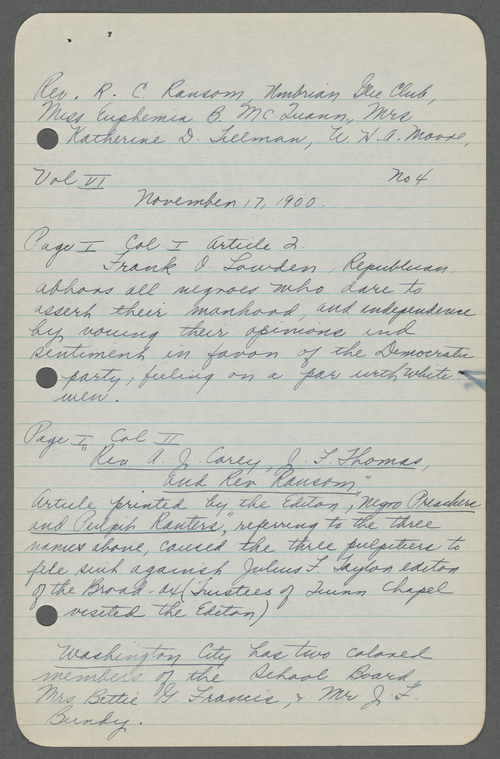 Rev. R. C. Ransom, Umbrian Glee Club,
Miss Euphemia B. McQuann, Mrs
Katherine D. Tillman, W. H. A. Moore,
Vol VI No 4
November 17, 1900.
Page I Col I Article 2.
Frank O. Lowden, Republican,
abhors all negroes who dare to
assert their manhood, and independence
by voicing their opinions and
sentiment in favor of the Democratic
party, feeling on a par with white
men.
Page I Col II
"Rev A. J. Carey, J. F. Thomas,
and Rev Ransom"
Article printed by the Editor, "Negro Preachers
and Pulpit Ranters", referring to the three
names above, caused the three pulpitiers to
file suit against Julius F. Taylor editor
of the Broad-ax (Trustees of Quinn Chapel
visited the Editor)
Washington City has two colored
members of the School Board,
Mrs Bettie G. Francis, & Mr J. F.
Bundy.